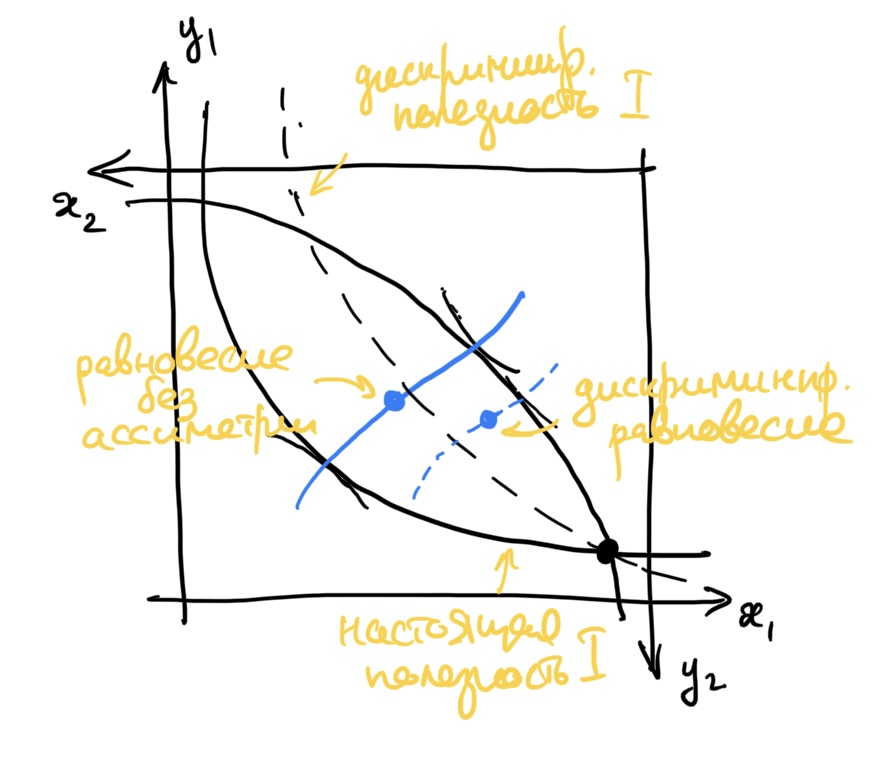 y₁
дискриминир.
полезность I
x₂
равновесие
без
ассиметрии
дискриминир.
равновесие
x₁
настоящая
полезность I
y₂